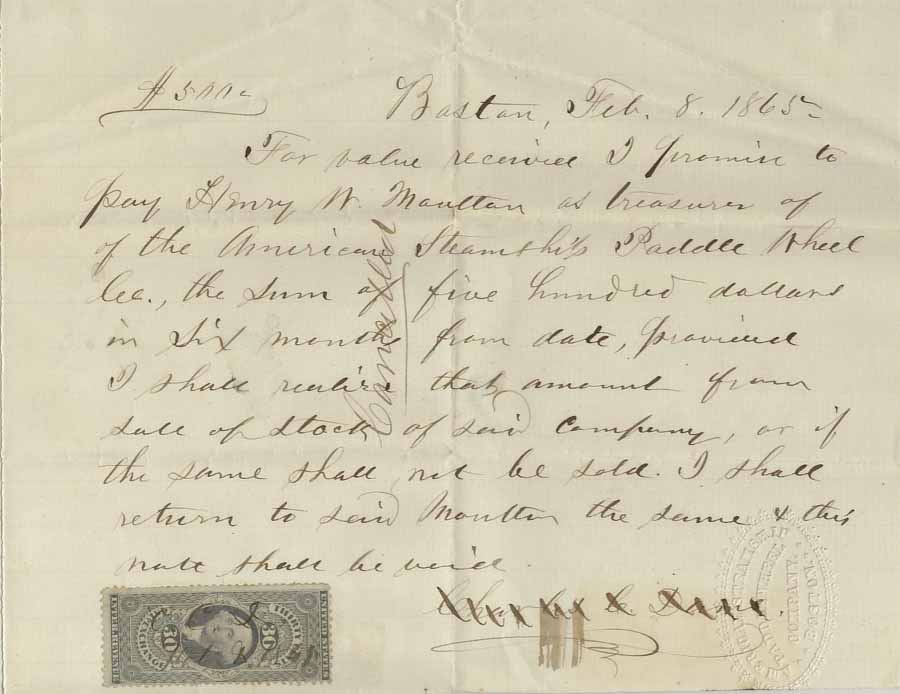 $500-
Boston, Feb. 8. 1865-
For value received I promise to
pay Henry W. Moulton as treasurer of
of the American Steamship Paddle Wheel
Co., the sum of five hundred dollars
in six months from date, provided
I shall realize that amount from
sale of stock of said Company, or if
the same shall not be sold. I shall
return to said Moulton the same & this
note shall be void.
Cancelled
Charles
30 THIRTY 30